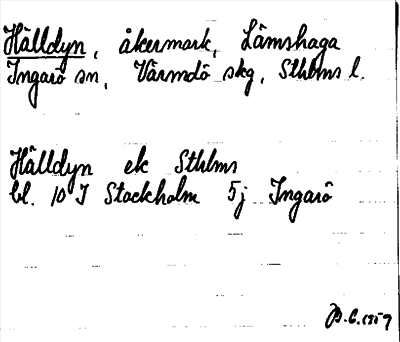 Hälldyn, åkermark, Lämshaga
Ingarö sn, Värmdö skg, Sthlms l.
Hälldyn ek Sthlms
bl. 10 I Stockholm 5j Ingarö
1959